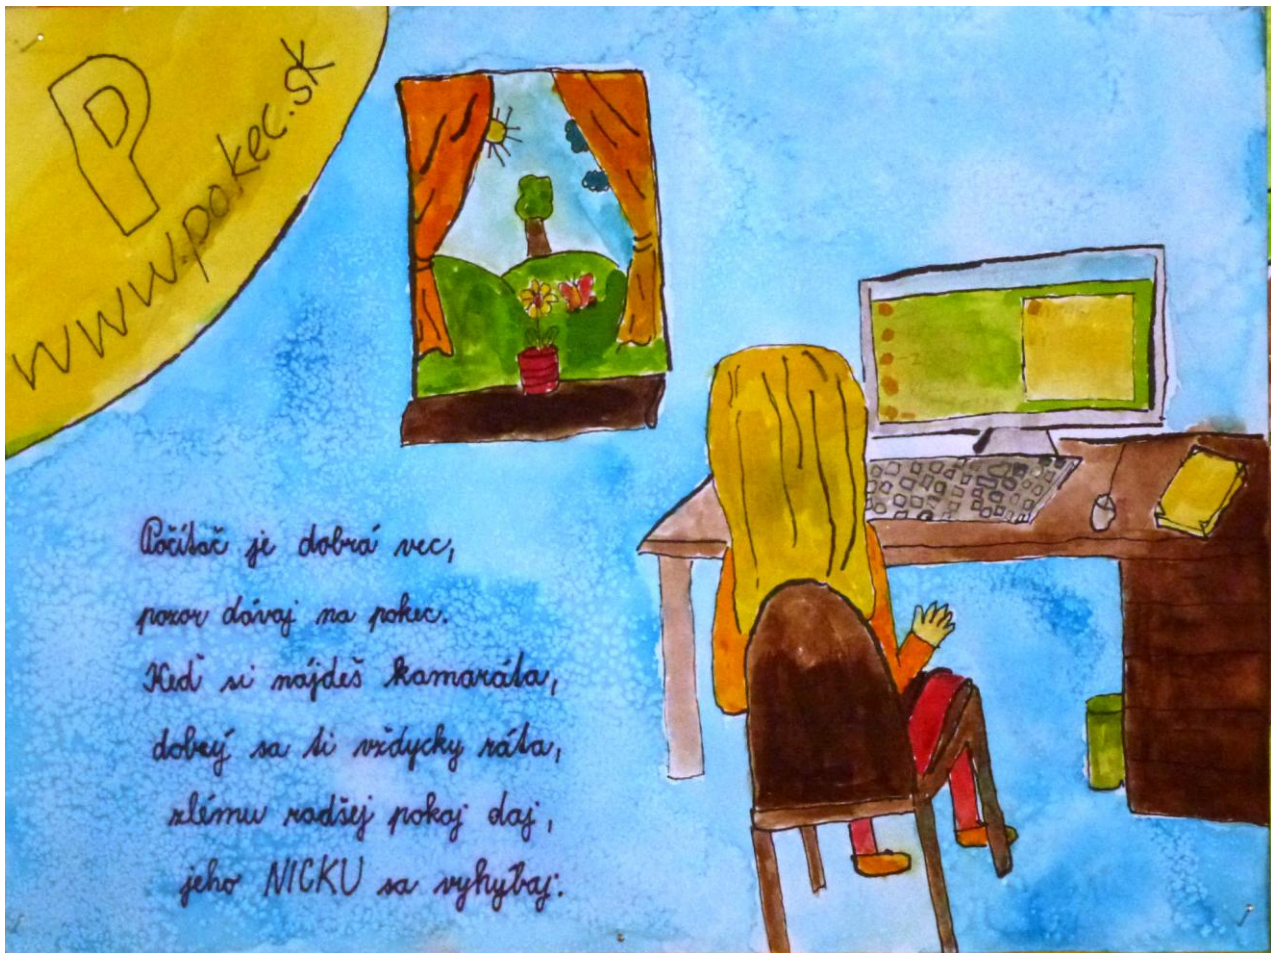 P
www.pokec.sk
Počítač je dobrá vec,
pozor dávaj na pokec.
Keď si nájdeš kamaráta,
dobrý sa ti vždycky ráta,
zlému radšej pokoj daj,
jeho NICKU sa vyhýbaj.